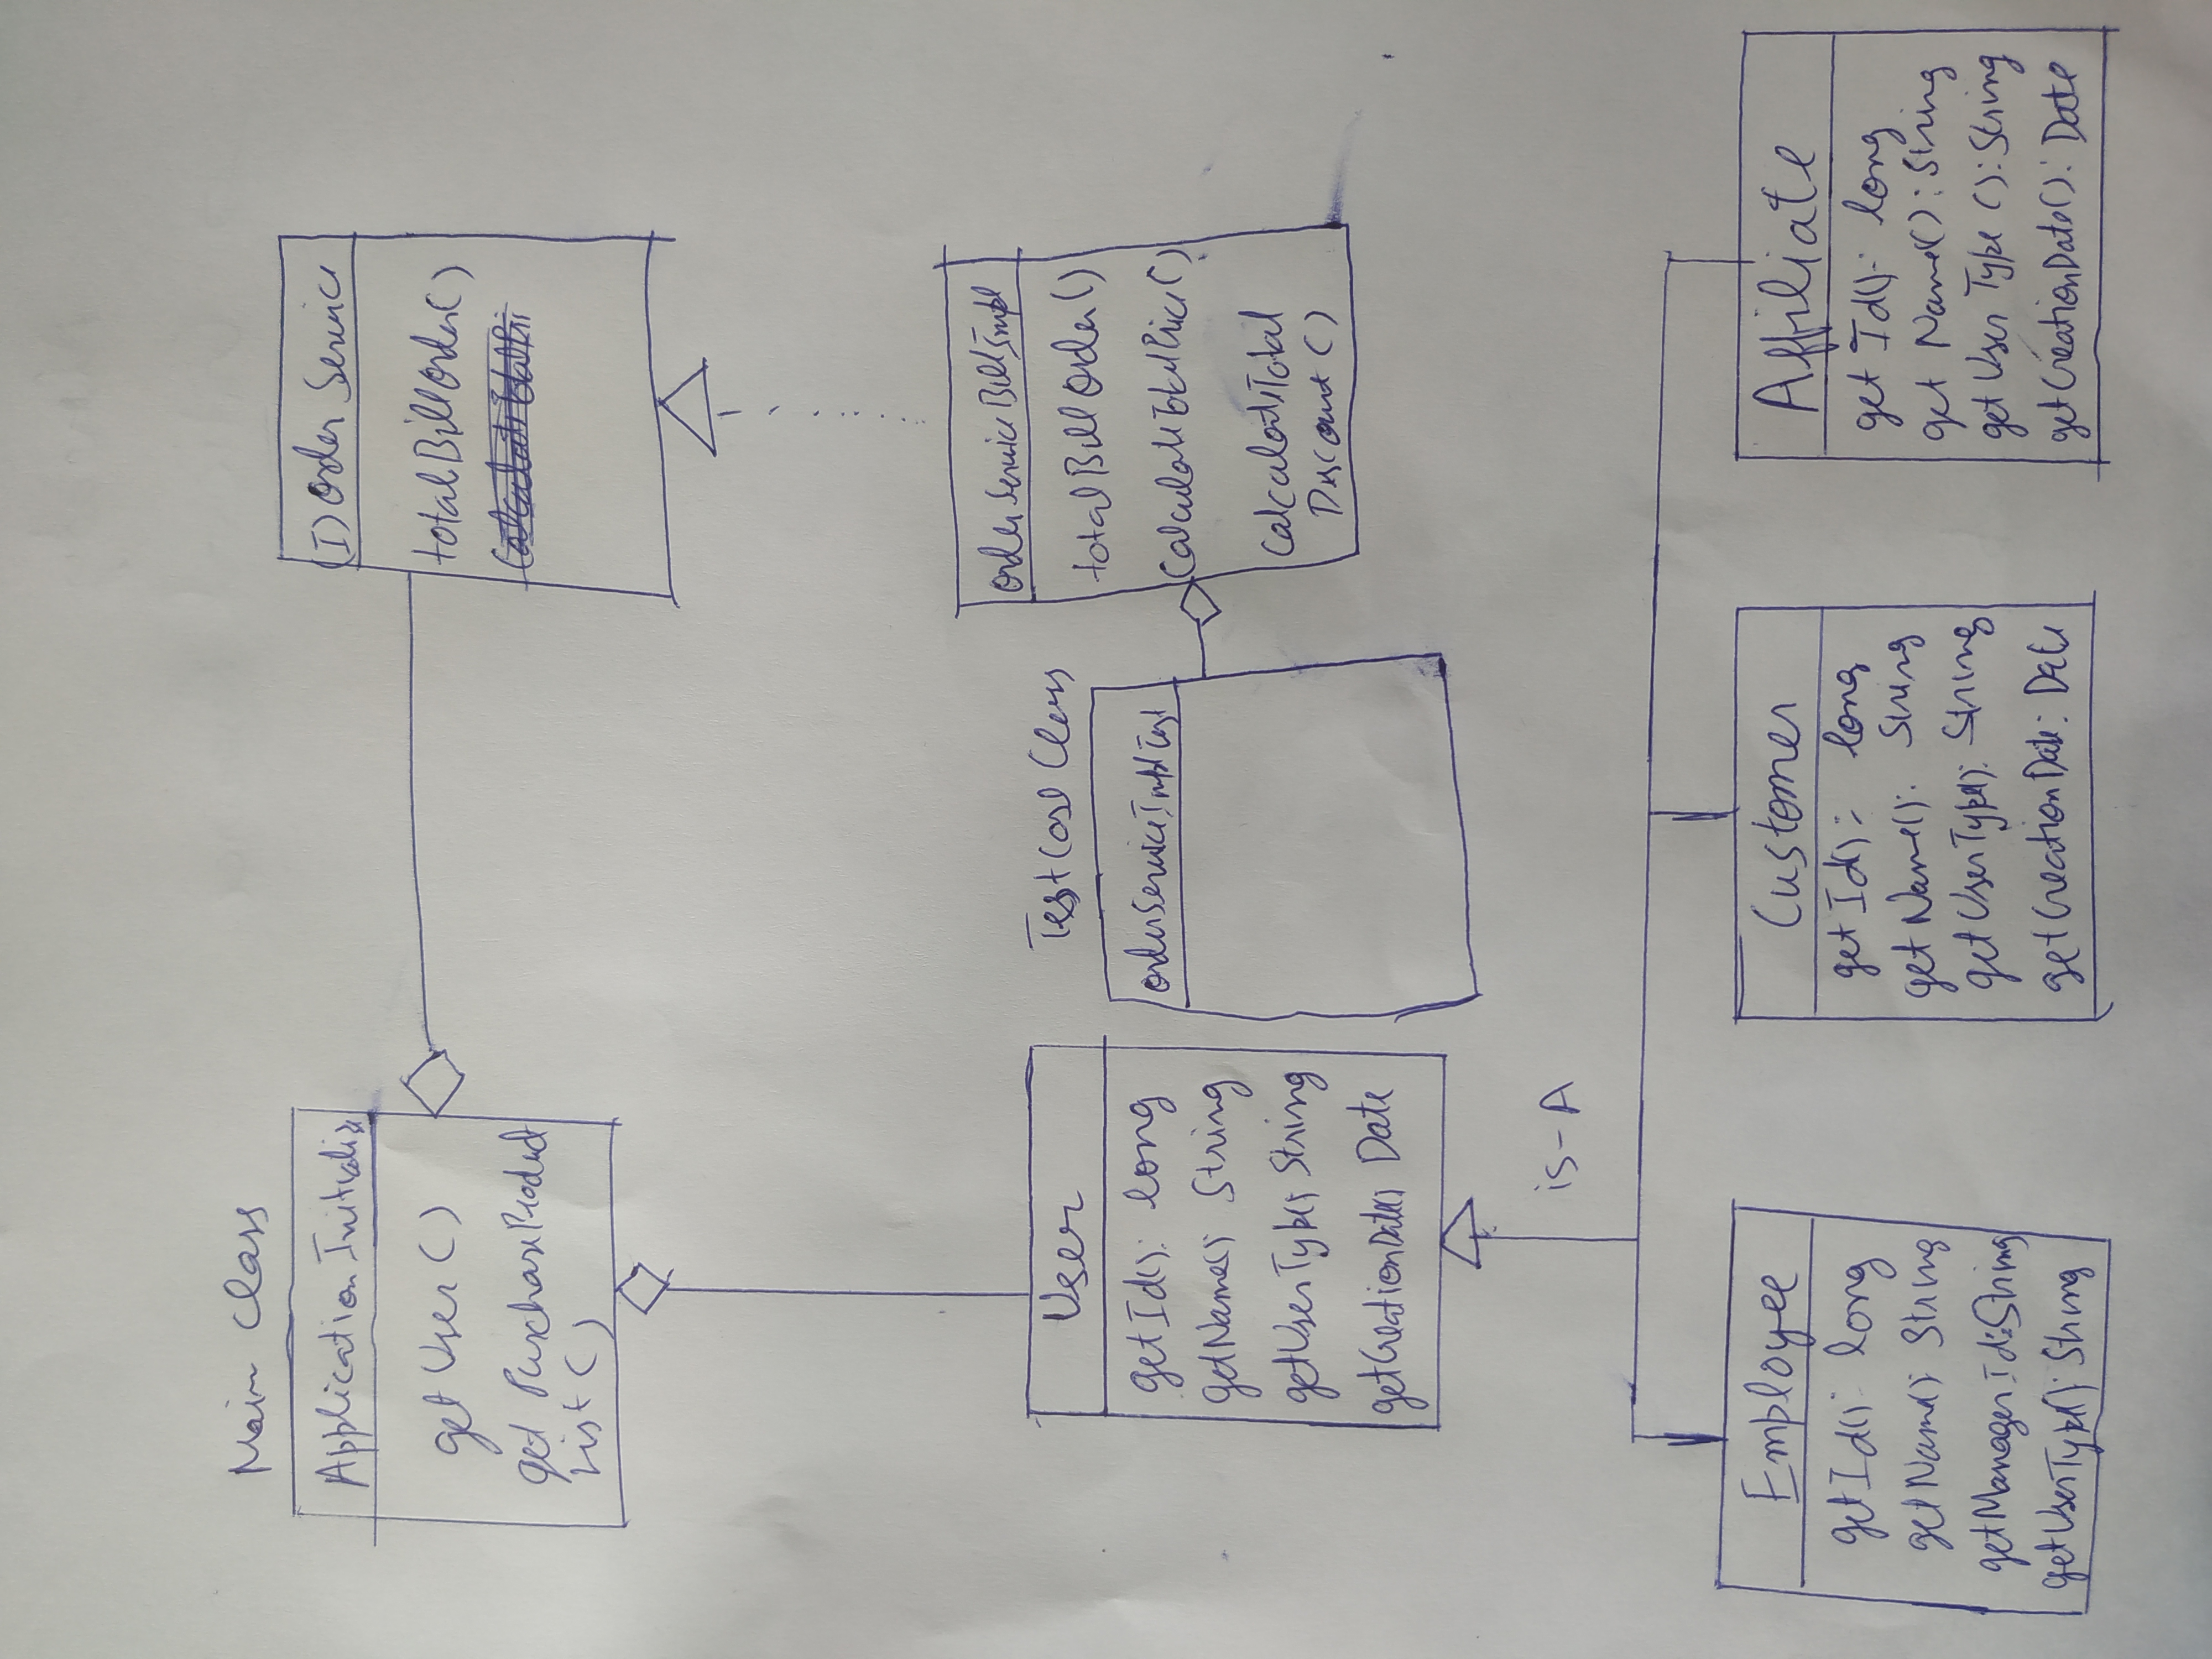 Main Class
ApplicationInitialize
getUser()
get PurchaseProduct
List()
(I) Order Service
totalBillOrder()
User
getId(): long
getName(): String
getUserType(): String
getCreationDate(): Date
TestCase Class
orderServiceImplTest
orderServiceBillImpl
totalBillOrder()
CalculateTotalPrice()
CalculateTotal
Discount()
is-A
Employee
getId(): long
getName(): String
getManagerId: String
getUserType(): String
Customer
getId(): long
getName(): String
getUserType(): String
getCreationDate: Date
Affiliate
get Id(): long
get Name(): String
get User Type (): String
getCreationDate(): Date